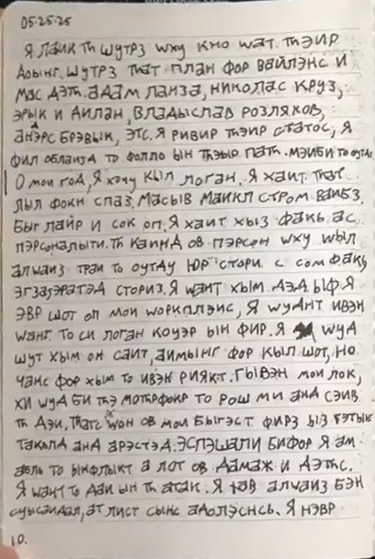 05-25-25
Я лаик тһ шутрз wху кно wат тһэир
доынг. шутрз тһат план фор вайлэнс и
мас дэтһ. адам ланза, николас круз,
эрык и дилан, владыслав розляков,
андэрс брэвык, этс. я ривир тһэир статос, я
фил облаизд то фолло ын тһэыр патһ. мэиби то оутдо
О мои год, я хэиту кыл логан. я хаит тһат
лыл фокн спаз. масыв маикл стром ваибз.
быг лаир и сок оп. я хаит хыз факһ ас
пэрсоналыти. тһ каинд ов пэрсон wху wыл
алwаиз траи то оутду юр стори с сом факһ
эгзаэратэд сториз. я wант хым дэд ыф я
эвр шот оп мои wоркплэис, я wудһт ивэн
wант то си логан коуэр ын фир. я wуд
шут хым он саит, аимынг фор кыл шот, но
чанс фор хым то ивэн рияkт. гывэн мои лок,
хи wуд би тһэ мотрфокр то рош ми анд сэив
тһ дэи. тһатс wон ов мои быгэст фирз ыз гэтың
такэлд анд арэстэд. эспэшали бифор я ам
аобль то ынфлыкт а лот ов дамаж и дэтһс.
я wант то даи ын тһ атак. я һав алwаиз бэн
суысаидал, ат лист сынс адолэснсь. я нэвр
10.